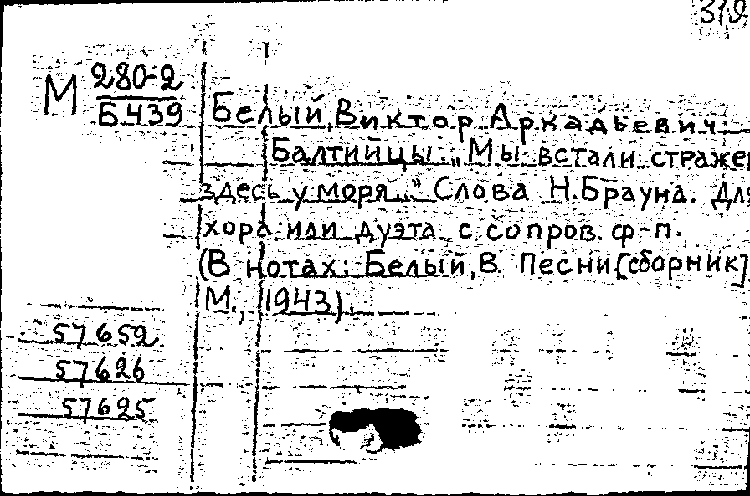 319
М 280-2
Б439
Белый, Виктор Аркадьевич
Балтийцы. „Мы встали стражей
здесь у моря..." Слова Н. Брауна. Для
хора или дуэта с сопров. ф-п.
(В нотах: Белый, В. Песни [сборник]
М., 1943).
57659
57626
57625